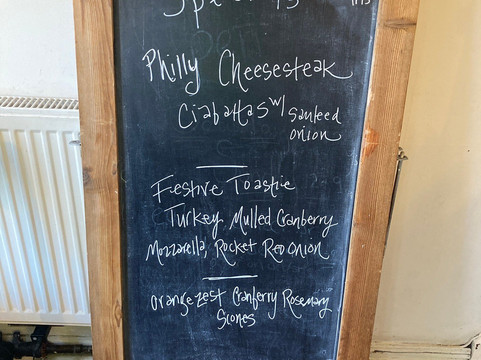 Philly Cheesesteak
Ciabattas w/ Sauteed
onion
Festive Toastie
Turkey Mulled Cranberry
Mozzarella, Rocket Red Onion
Orange Zest Cranferry Rosemary
Scones